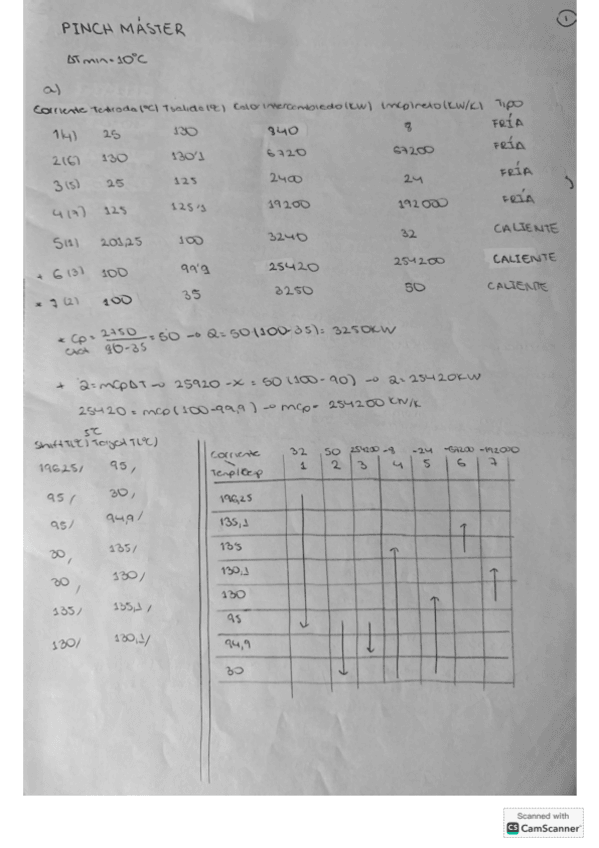 1
PINCH MÁSTER
ΔTmin=10°C
a)
Corriente Tentrada(°C) Tsalida(°C) Calor intercambiado(KW) (mcp)neto(KW/K) Tipo
1(4) 25 130 840 8 FRÍA
2(6) 130 130'1 6720 67200 FRÍA
3(5) 25 125 2400 24 FRÍA
4(7) 125 125'1 19200 192000 FRÍA
5(1) 201,25 100 3240 32 CALIENTE
+ 6(3) 100 99'9 25420 254200 CALIENTE
* 7(2) 100 35 3250 50 CALIENTE
* Cp = 2750/90-35 = 50 → Q = 50(100-35) = 3250KW
+ Q=mCpΔT → 25920-x = 50(100-90) → Q=25420KW
25420 = mcp(100-99,9) → mcp = 254200 KN/K
5°C
Shift T(°C) Target T(°C)
196,25/ 95,
95/ 30,
95/ 94,9/
30, 135/
30, 130/
135/ 135,1/
130/ 130,1/
Corriente 32 50 254200 -8 -24 -67200 -192000
Temp 1 2 3 4 5 6 7
196,25
135,1
135
130,1
130
95
94,9
30
Scanned with
CS CamScanner